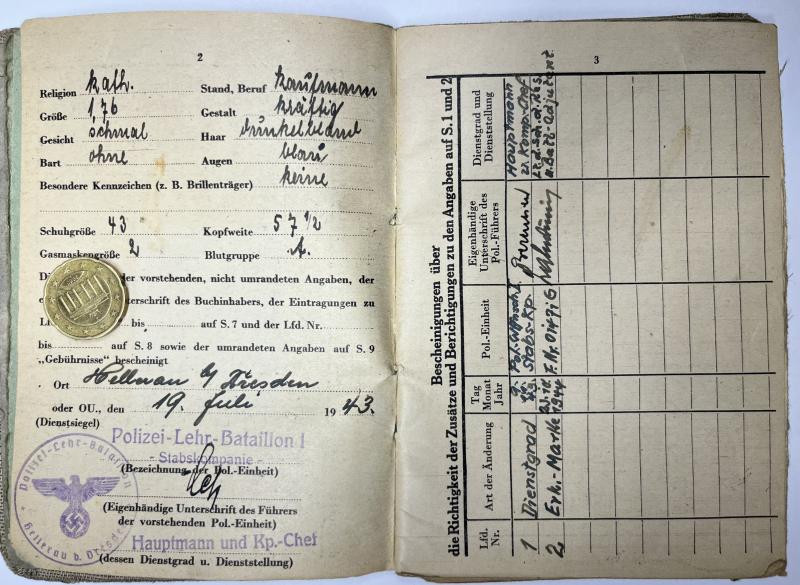 2
Religion kath. Stand, Beruf Kaufmann
Größe 176 Gestalt kräftig
Gesicht schmal Haar dunkelblond
Bart ohne Augen blau
Besondere Kennzeichen (z. B. Brillenträger) keine
Schuhgröße 43 Kopfweite 57 1/2
Gasmaskengröße 2 Blutgruppe A.
der vorstehenden, nicht umrandeten Angaben, der
terschrift des Buchinhabers, der Eintragungen zu
bis auf S. 7 und der Lfd. Nr.
bis auf S. 8 sowie der umrandeten Angaben auf S. 9
„Gebührnisse“ bescheinigt
Ort Hellerau b/ Dresden
oder OU., den 19. Juli 1943.
(Dienstsiegel)
Polizei-Lehr-Bataillon I
- Stabskompanie -
(Bezeichnung der Pol.-Einheit)
(Eigenhändige Unterschrift des Führers
der vorstehenden Pol.-Einheit)
Hauptmann und Kp.-Chef
(dessen Dienstgrad u. Dienststellung)
Polizei-Lehr-Bataillon
Hellerau b. Dresden
3
Bescheinigungen über
die Richtigkeit der Zusätze und Berichtigungen zu den Angaben auf S. 1 und 2
Lfd. Nr.
Art der Änderung
Tag Monat Jahr
Pol.-Einheit
Eigenhändige Unterschrift des Pol.-Führers
Dienstgrad und Dienststellung
1 Dienstgrad Stabs-Kp. Hauptmann u. Komp.-Chef
2 Erk.-Marke 1944 u. Batl-Adjutant